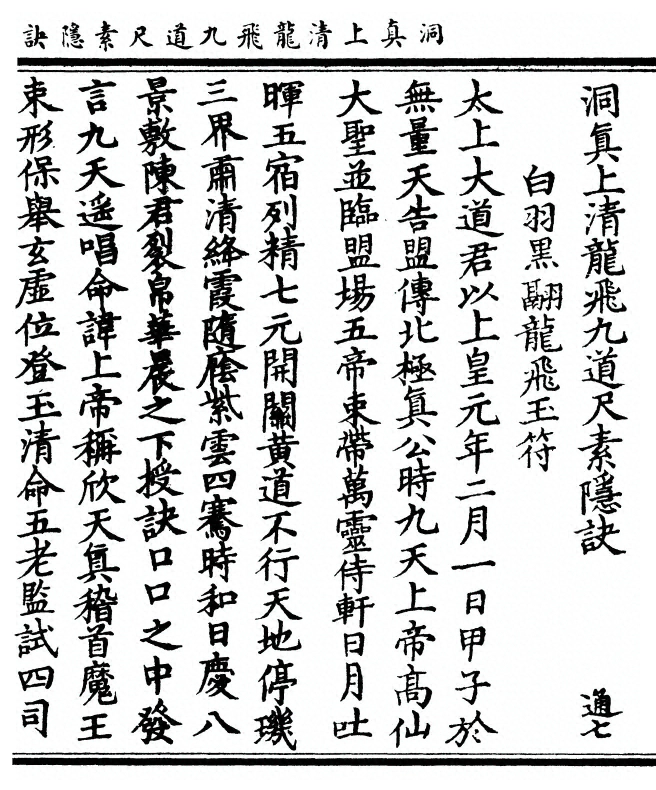 洞真上清龍飛九道尺素隱訣
洞真上清龍飛九道尺素隱訣 通七
白羽黑翮龍飛玉符
太上大道君以上皇元年二月一日甲子於
無量天告盟傳北極真公時九天上帝高仙
大聖並臨盟場五帝束帶萬靈侍軒日月吐
暉五宿列精七元開關黃道不行天地停璣
三界肅清絳霞隨䕃紫雲四騫時和日慶八
景敷陳君裂帛華晨之下授訣口口之中發
言九天遥唱命諱上帝稱欣天真稽首魔王
束形保舉玄虛位登玉清命五老監試四司